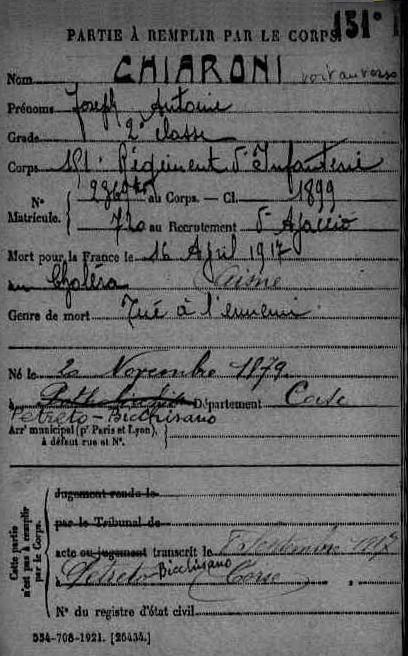 151e
PARTIE À REMPLIR PAR LE CORPS
Nom CHIARONI voir au verso
Prénoms Joseph Antoine
Grade 2e classe
Corps 151e Régiment d'Infanterie
N° Matricule. au Corps. — Cl. 1899
720 au Recrutement d'Ajaccio
Mort pour la France le 16 April 1917
au Choléra Aisne
Genre de mort Tué à l'ennemi
Né le Novembre 1879
à Département Corse
Petreto-Bicchisano
Arrt municipal (pr Paris et Lyon),
à défaut rue et N°.
Cette partie n'est pas à remplir par le Corps.
Jugement rendu le
par le Tribunal de
acte ou jugement transcrit le 1917
Petreto Bicchisano Corse
N° du registre d'état civil
534-708-1921. [26434.]